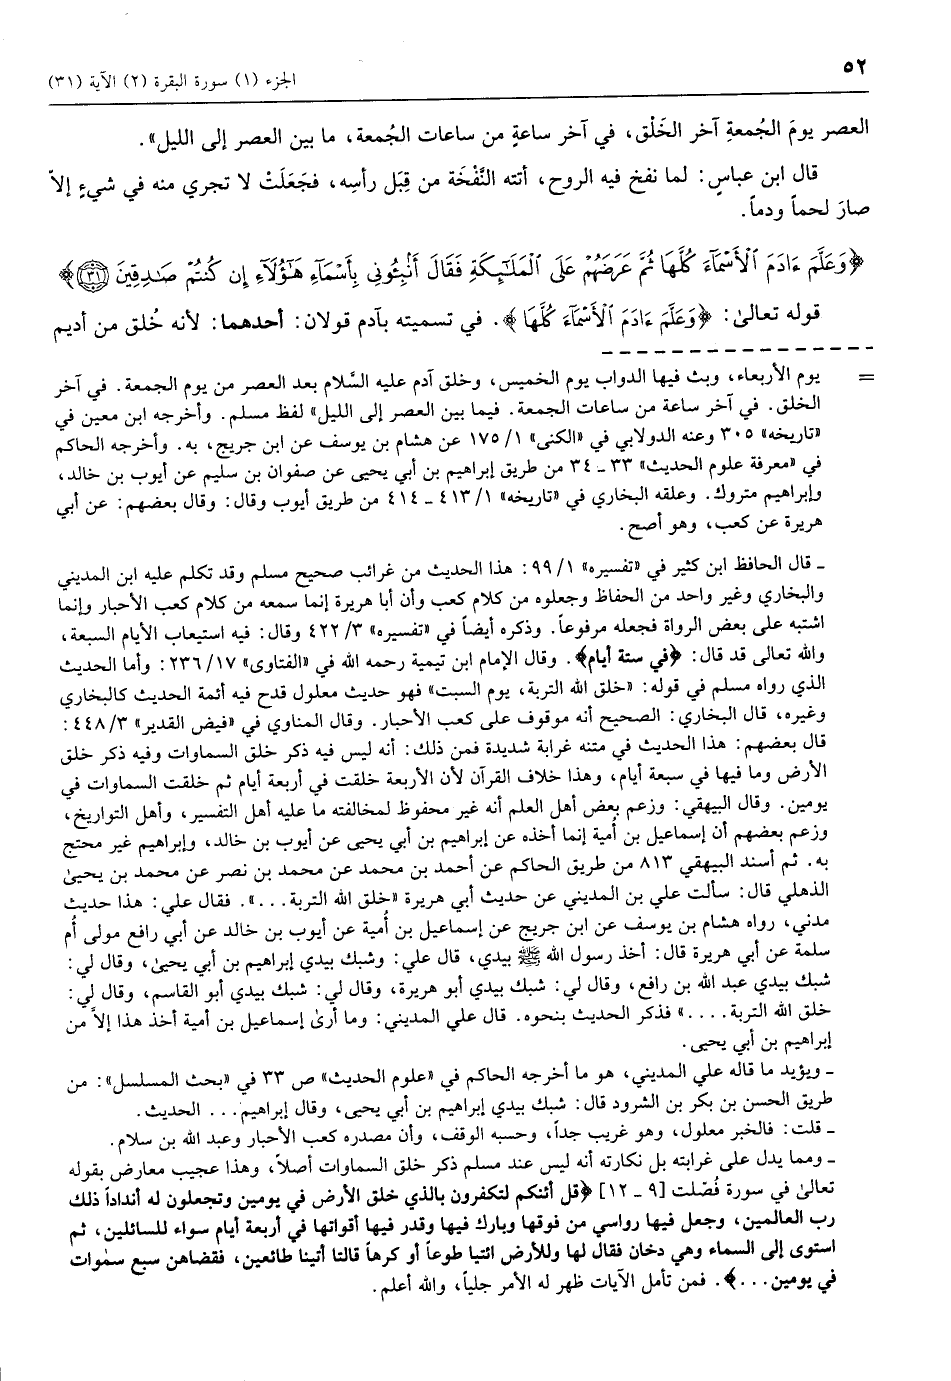 ٥٢
الجزء (١) سورة البقرة (٢) الآية (٣١)
العصر يومَ الجُمعةِ آخر الخَلْق، في آخر ساعةٍ من ساعات الجُمعة، ما بين العصر إلى الليل».
قال ابن عباسٍ: لما نفخ فيه الروح، أتته النَّفْخَة من قِبَل رأسِه، فجَعَلَتْ لا تجري منه في شيءٍ إلاّ
صارَ لحماً ودماً.
﴿وَعَلَّمَ ءَادَمَ ٱلْأَسْمَآءَ كُلَّهَا ثُمَّ عَرَضَهُمْ عَلَى ٱلْمَلَٰٓئِكَةِ فَقَالَ أَنۢبِـُٔونِى بِأَسْمَآءِ هَٰٓؤُلَآءِ إِن كُنتُمْ صَٰدِقِينَ ﴿٣١﴾﴾
قوله تعالىٰ: ﴿وَعَلَّمَ ءَادَمَ ٱلْأَسْمَآءَ كُلَّهَا﴾. في تسميته بآدم قولان: أحدهما: لأنه خُلق من أديم
= يوم الأربعاء، وبث فيها الدواب يوم الخميس، وخلق آدم عليه السَّلام بعد العصر من يوم الجمعة. في آخر
الخلق. في آخر ساعة من ساعات الجمعة. فيما بين العصر إلى الليل» لفظ مسلم. وأخرجه ابن معين في
«تاريخه» ٣٠٥ وعنه الدولابي في «الكنى» ١/ ١٧٥ عن هشام بن يوسف عن ابن جريج، به. وأخرجه الحاكم
في «معرفة علوم الحديث» ٣٣ ـ ٣٤ من طريق إبراهيم بن أبي يحيى عن صفوان بن سليم عن أيوب بن خالد،
وإبراهيم متروك. وعلقه البخاري في «تاريخه» ١/ ٤١٣ ـ ٤١٤ من طريق أيوب وقال: وقال بعضهم: عن أبي
هريرة عن كعب، وهو أصح.
ـ قال الحافظ ابن كثير في «تفسيره» ١/ ٩٩: هذا الحديث من غرائب صحيح مسلم وقد تكلم عليه ابن المديني
والبخاري وغير واحد من الحفاظ وجعلوه من كلام كعب وأن أبا هريرة إنما سمعه من كلام كعب الأحبار وإنما
اشتبه على بعض الرواة فجعله مرفوعاً. وذكره أيضاً في «تفسيره» ٣/ ٤٢٢ وقال: فيه استيعاب الأيام السبعة،
والله تعالى قد قال: ﴿في ستة أيام﴾. وقال الإمام ابن تيمية رحمه الله في «الفتاوى» ١٧/ ٢٣٦: وأما الحديث
الذي رواه مسلم في قوله: «خلق الله التربة، يوم السبت» فهو حديث معلول قدح فيه أئمة الحديث كالبخاري
وغيره، قال البخاري: الصحيح أنه موقوف على كعب الأحبار. وقال المناوي في «فيض القدير» ٣/ ٤٤٨:
قال بعضهم: هذا الحديث في متنه غرابة شديدة فمن ذلك: أنه ليس فيه ذكر خلق السماوات وفيه ذكر خلق
الأرض وما فيها في سبعة أيام، وهذا خلاف القرآن لأن الأربعة خلقت في أربعة أيام ثم خلقت السماوات في
يومين. وقال البيهقي: وزعم بعض أهل العلم أنه غير محفوظ لمخالفته ما عليه أهل التفسير، وأهل التواريخ،
وزعم بعضهم أن إسماعيل بن أُمية إنما أخذه عن إبراهيم بن أبي يحيى عن أيوب بن خالد، وإبراهيم غير محتج
به. ثم أسند البيهقي ٨١٣ من طريق الحاكم عن أحمد بن محمد عن محمد بن نصر عن محمد بن يحيىٰ
الذهلي قال: سألت علي بن المديني عن حديث أبي هريرة «خلق الله التربة...». فقال علي: هذا حديث
مدني، رواه هشام بن يوسف عن ابن جريج عن إسماعيل بن أُمية عن أيوب بن خالد عن أبي رافع مولى أُم
سلمة عن أبي هريرة قال: أخذ رسول الله ﷺ بيدي، قال علي: وشبك بيدي إبراهيم بن أبي يحيىٰ، وقال لي:
شبك بيدي عبد الله بن رافع، وقال لي: شبك بيدي أبو هريرة، وقال لي: شبك بيدي أبو القاسم، وقال لي:
خلق الله التربة....» فذكر الحديث بنحوه. قال علي المديني: وما أرىٰ إسماعيل بن أمية أخذ هذا إلاّ من
إبراهيم بن أبي يحيى.
ـ ويؤيد ما قاله علي المديني، هو ما أخرجه الحاكم في «علوم الحديث» ص ٣٣ في «بحث المسلسل»: من
طريق الحسن بن بكر بن الشرود قال: شبك بيدي إبراهيم بن أبي يحيى، وقال إبراهيم... الحديث.
ـ قلت: فالخبر معلول، وهو غريب جداً، وحسبه الوقف، وأن مصدره كعب الأحبار وعبد الله بن سلام.
ـ ومما يدل على غرابته بل نكارته أنه ليس عند مسلم ذكر خلق السماوات أصلاً، وهذا عجيب معارض بقوله
تعالىٰ في سورة فُصّلت [٩ ـ ١٢] ﴿قل أئنكم لتكفرون بالذي خلق الأرض في يومين وتجعلون له أنداداً ذلك
رب العالمين، وجعل فيها رواسي من فوقها وبارك فيها وقدر فيها أقواتها في أربعة أيام سواء للسائلين، ثم
استوى إلى السماء وهي دخان فقال لها وللأرض ائتيا طوعاً أو كرهاً قالتا أتينا طائعين، فقضاهن سبع سمٰوات
في يومين...﴾. فمن تأمل الآيات ظهر له الأمر جلياً، والله أعلم.